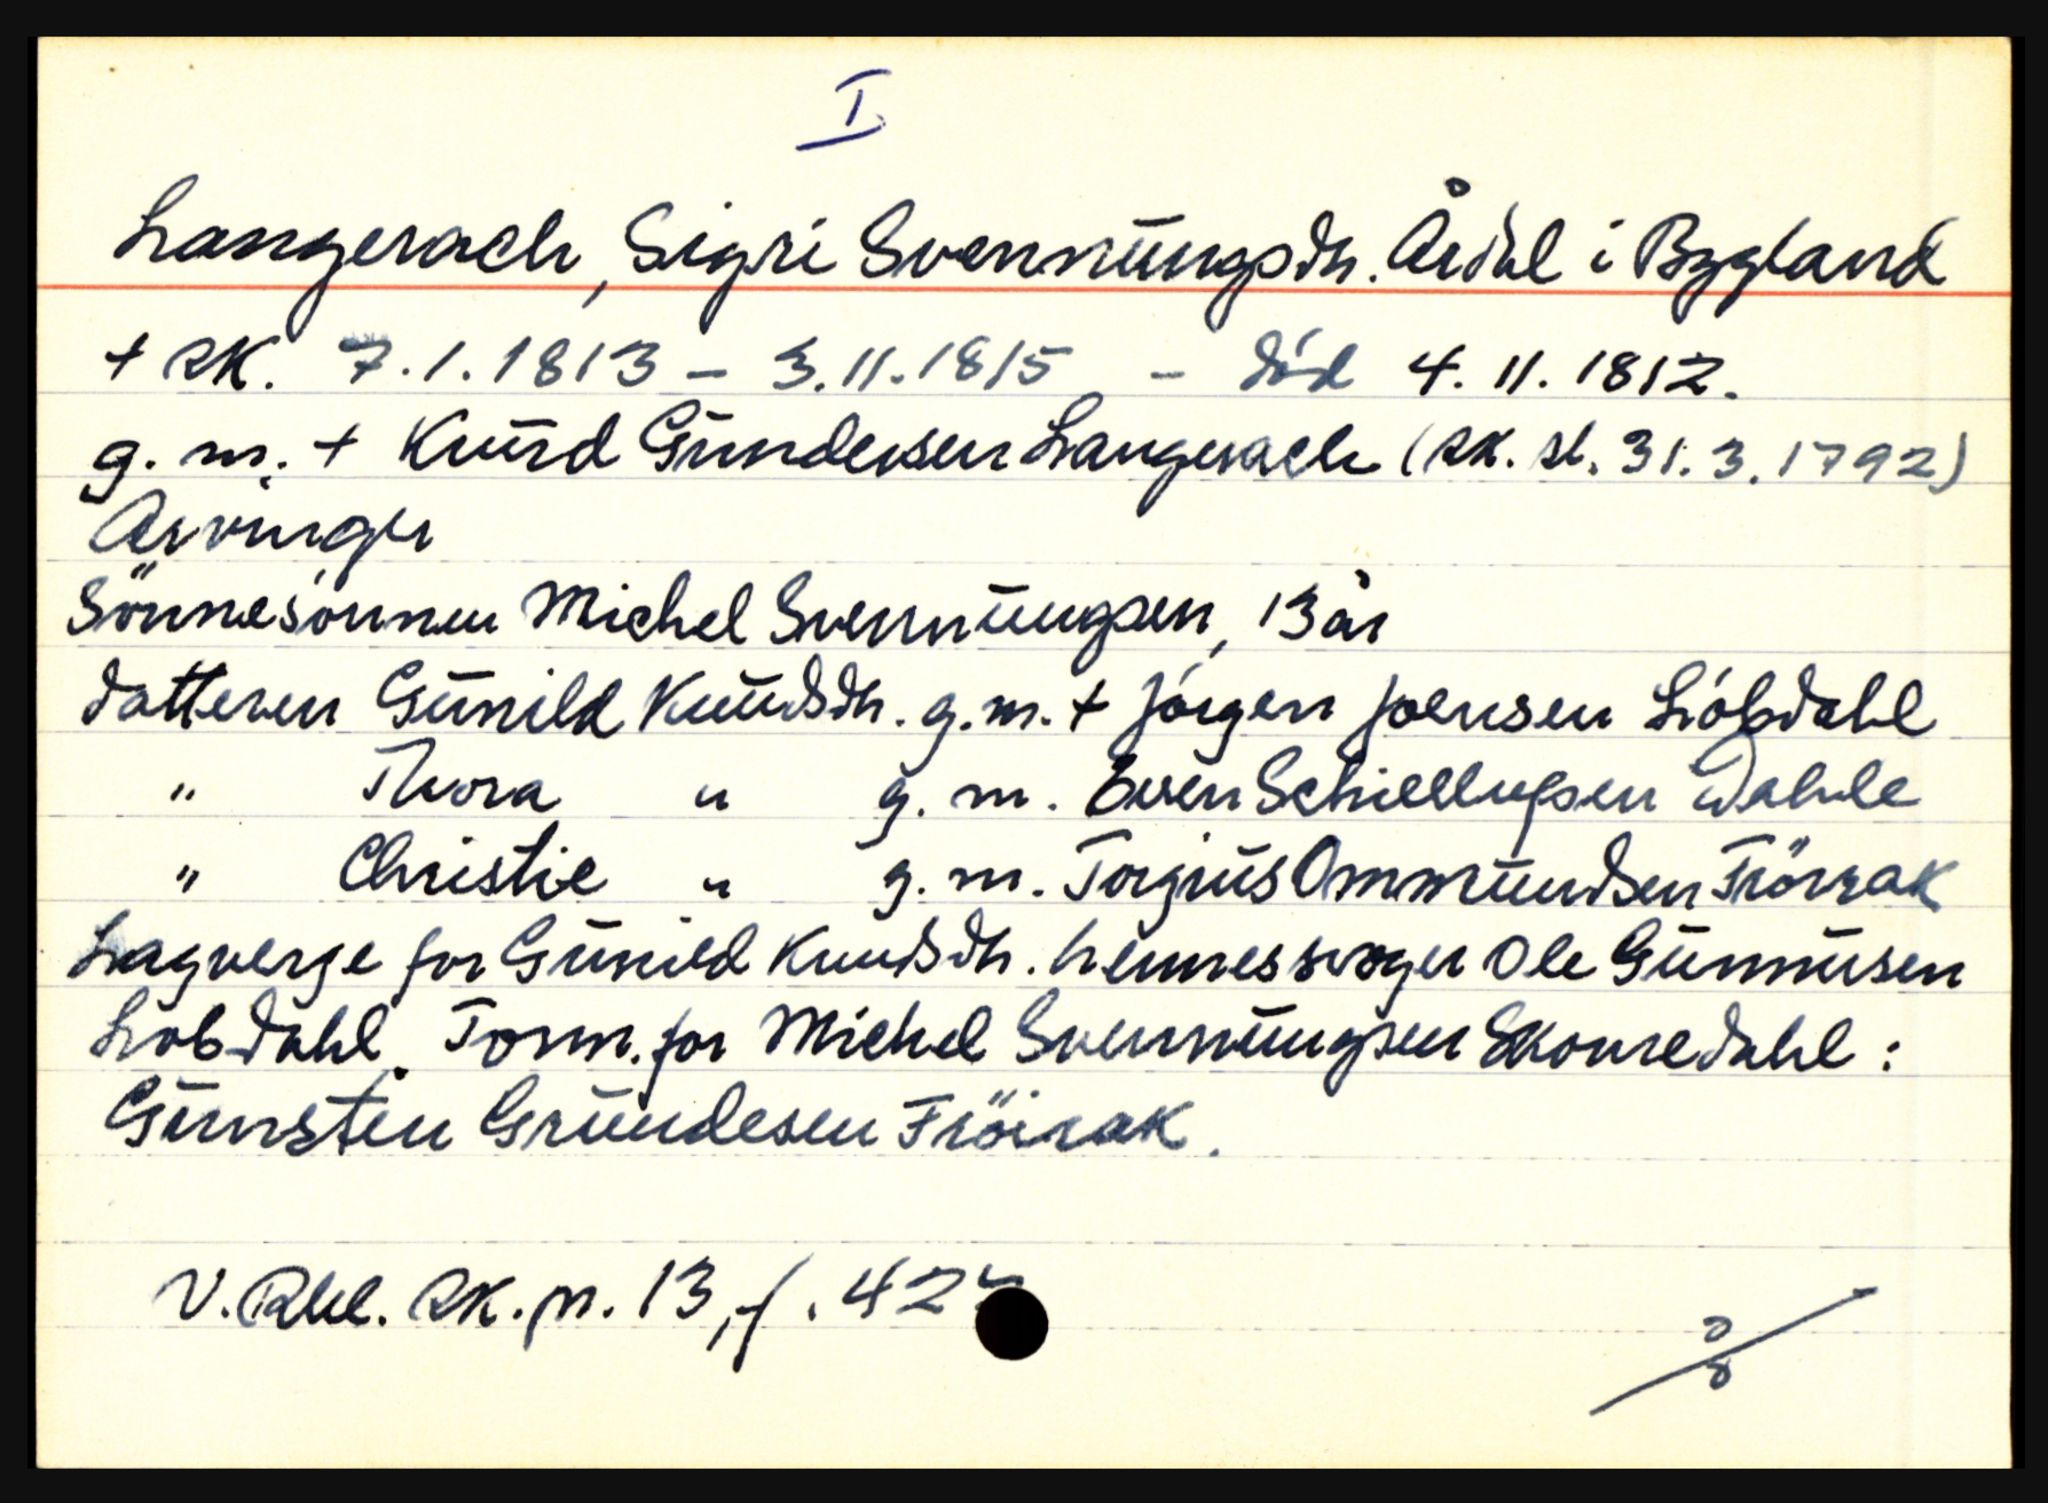 I
Langerach, Sigri Svennungsdtr. Årdal i Bygland
+ SK. 7.1.1813 - 3.11.1815 - död 4.11.1812.
g.m. + Knud Gundersen Langerach (SK. sl. 31.3.1792)
Arvinger
Sönnesönnen Michel Svennungsen, 13 år
datteren Gunild Knudsdtr. g.m. + Jörgen Joensen Liöbdahl
" Thora " g.m. Even Schiellufsen Dahle
" Christie " g.m. Torgius Ommundsen Fröirak
Lagverge for Gunild Knudsdtr. hennes svoger Ole Gunnusen
Liöbdahl. Form. for Michel Svennungsen Skomedahl:
Gunsten Grundesen Fröirak.
V. Rbl. SK. pr. 13, f. 42